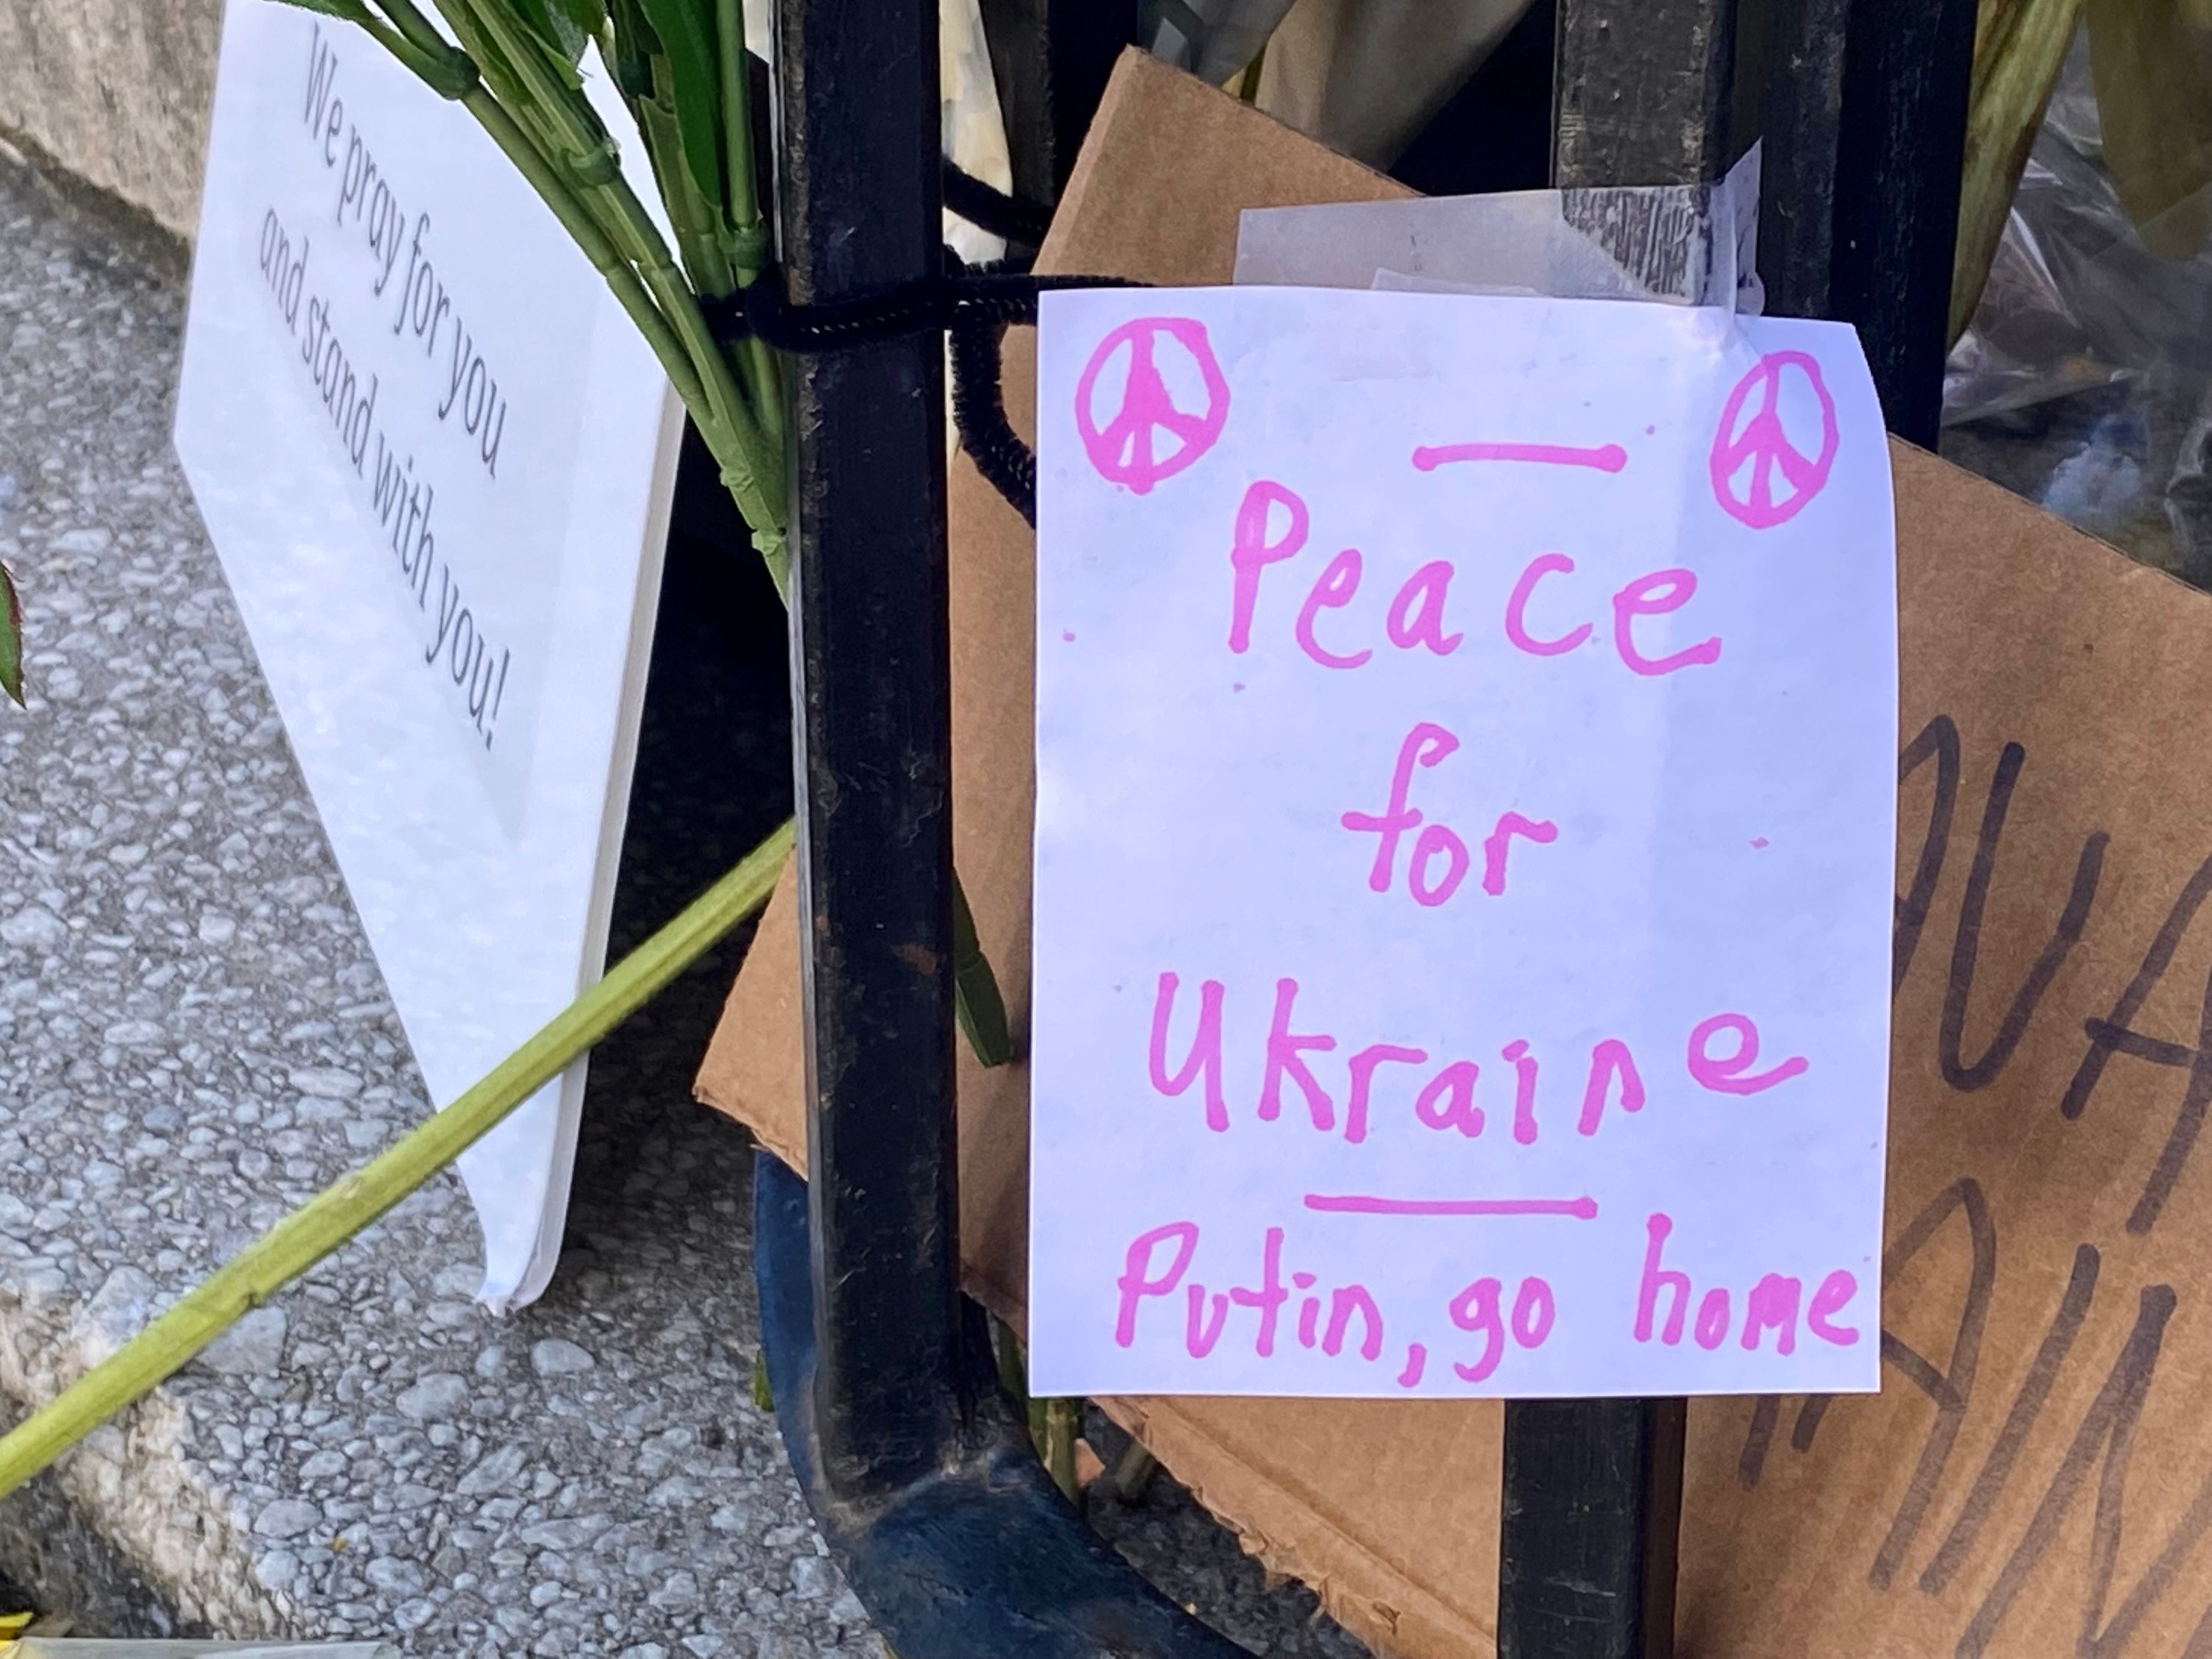 We pray for you
and stand with you!
Peace
for
Ukraine
Putin, go home